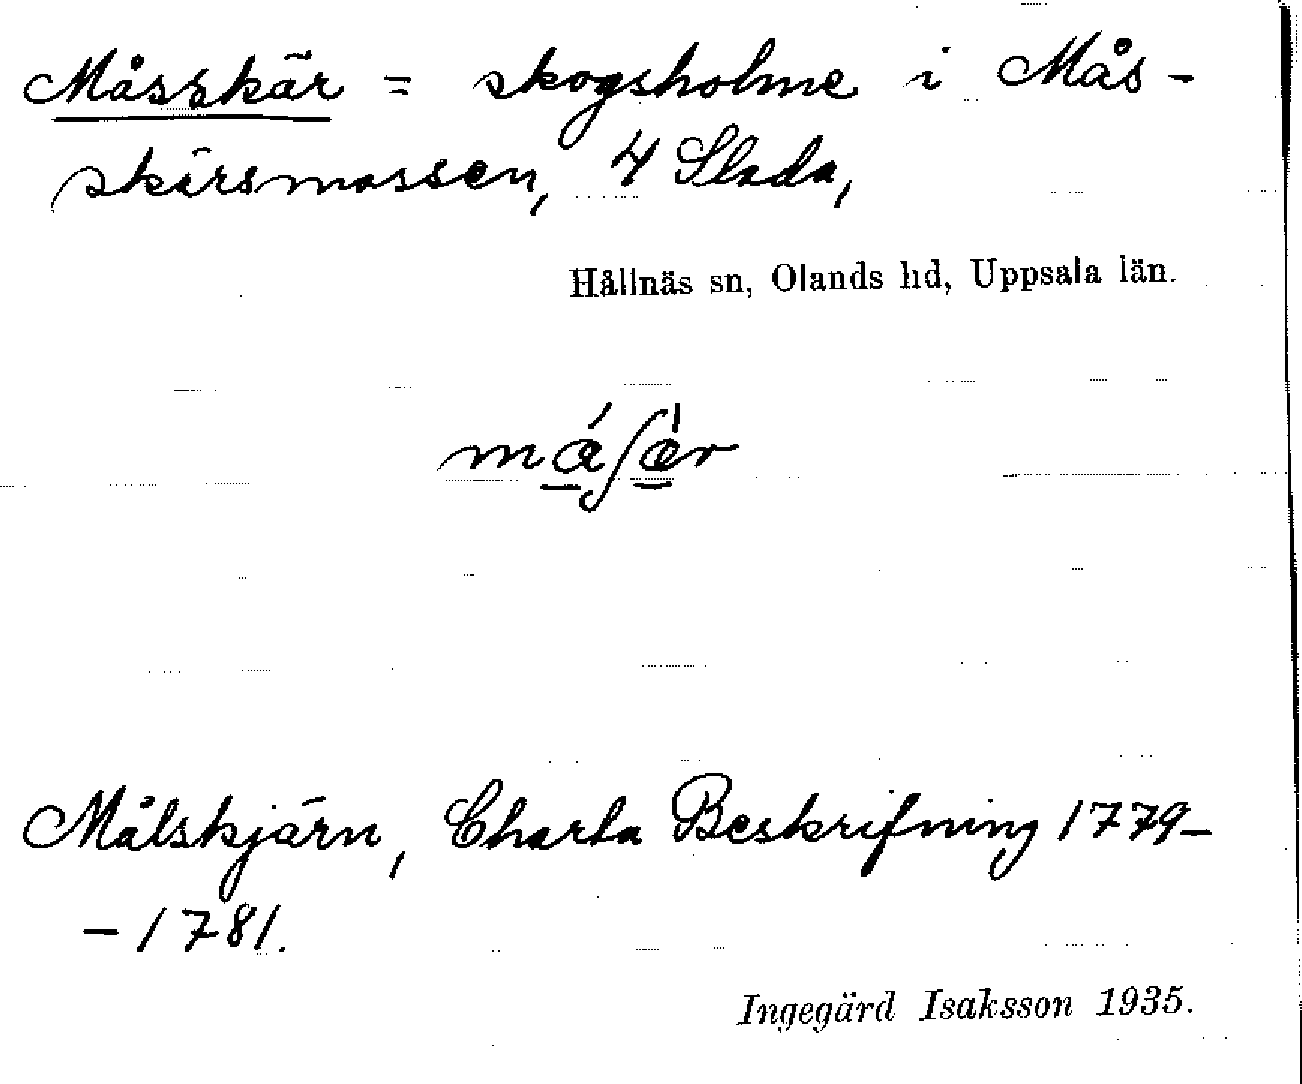 Måsskär = skogsholme i Mås-
skärsmossen, 4 Slada,
Hållnäs sn, Olands hd, Uppsala län.
Målskjärn, Charta Beskrifning 1779-
-1781.
Ingegärd Isaksson 1935.